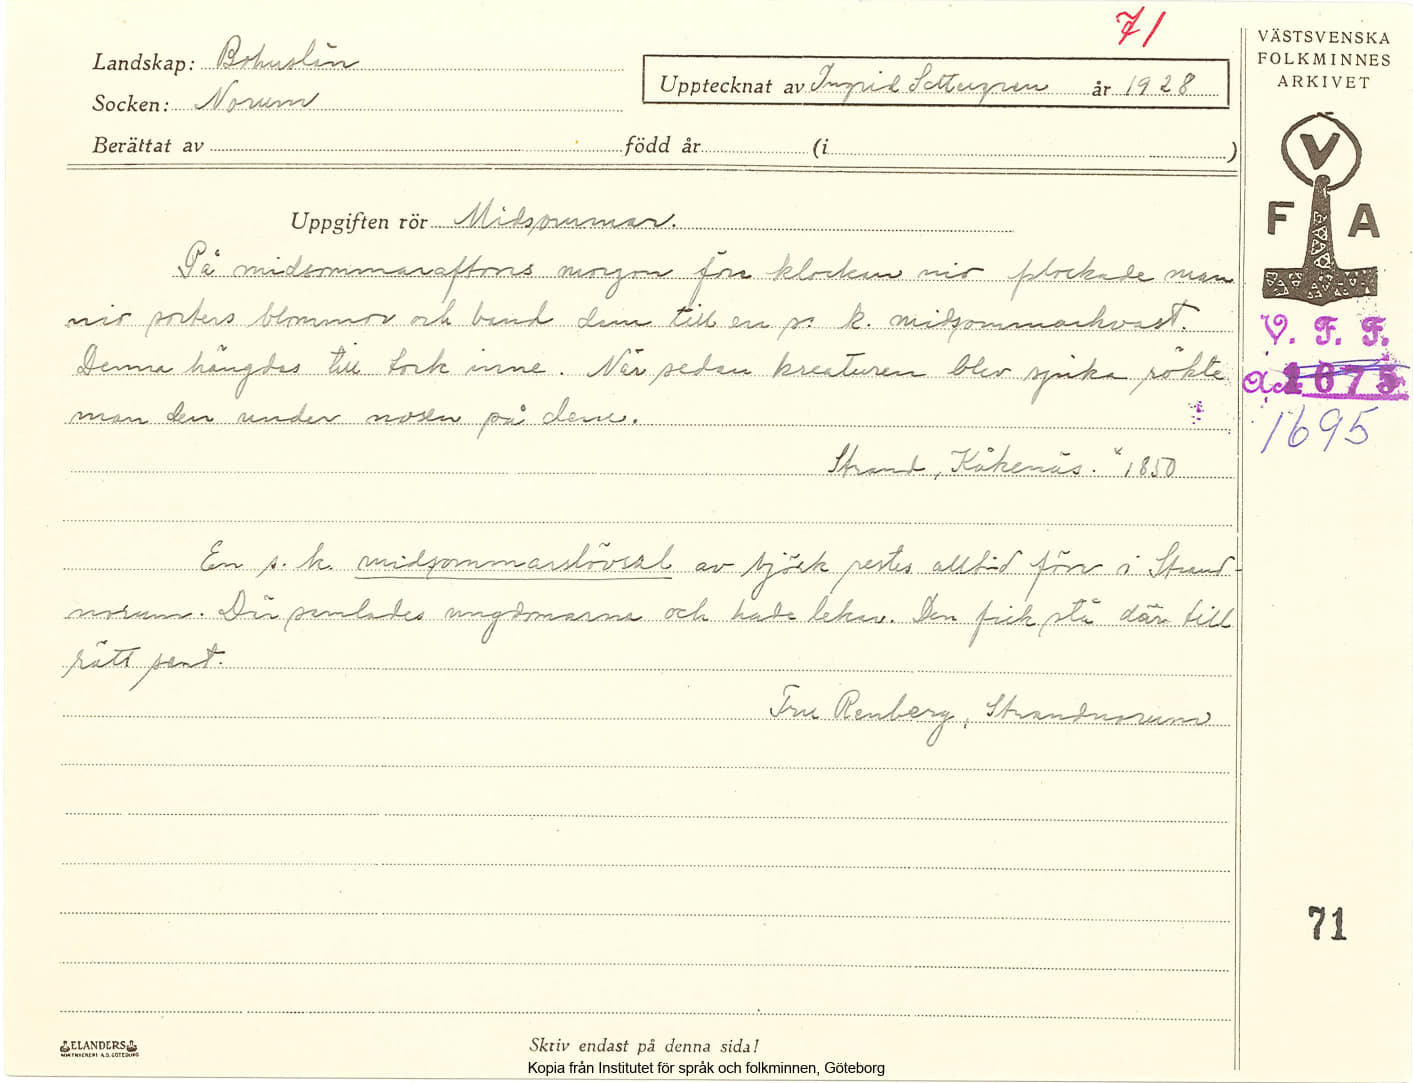 71
VÄSTSVENSKA
FOLKMINNES
ARKIVET
Landskap: Bohuslän
Socken: Norum
Upptecknat av Ingrid Settergren år 1928
Berättat av född år (i )
V
F A
Uppgiften rör Midsommar.
På midsommaraftons morgon före klockan nio plockade man
nio sorters blommor och band dem till en s. k. midsommarkvast.
Denna hängdes till tork inne. När sedan kreaturen blev sjuka rökte
man den under nosen på dem.
Strand, Kåkenäs. * 1850
V. F. F.
Acc 1675
1695
En s. k. midsommarslövsal av björk restes alltid förr i Strand-
norum. Där samlades ungdomarna och hade lekar. Den fick stå där till
rätt sent.
Fru Renberg, Strandnorum
71
ELANDERS
BOKTRYCKERI A.B. GÖTEBORG
Skriv endast på denna sida!
Kopia från Institutet för språk och folkminnen, Göteborg